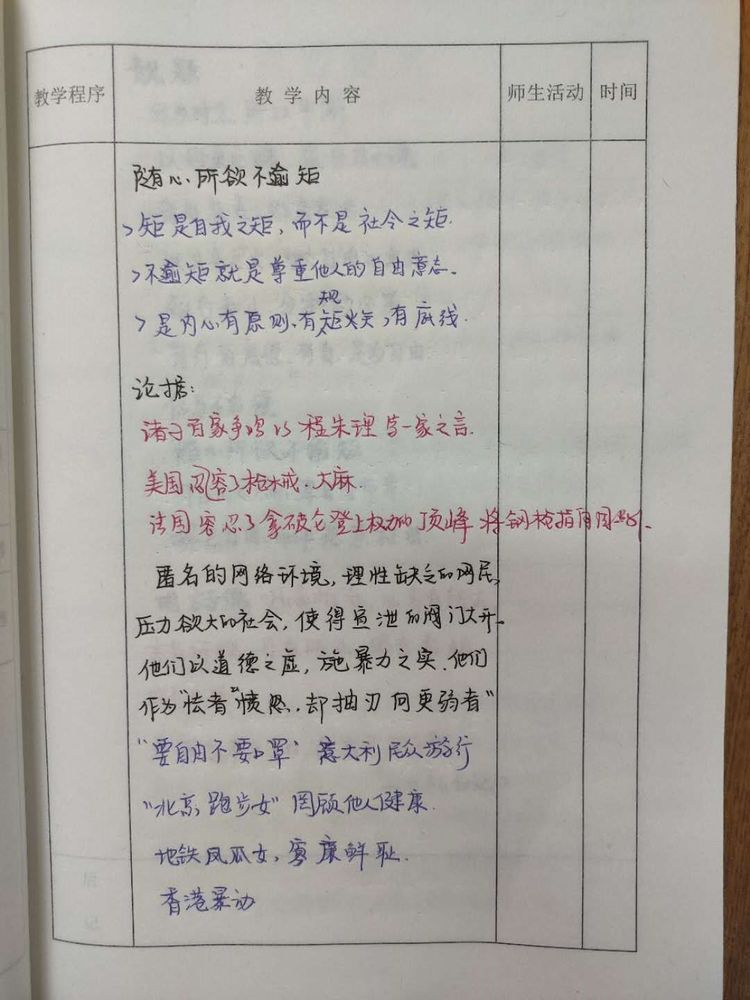 教学程序 教学内容 师生活动 时间
随心所欲不逾矩
>矩是自我之矩,而不是社会之矩.
>不逾矩就是尊重他人的自由意志.
>是内心有原则.有规矩,有底线.
论据:
诸子百家争鸣 vs 程朱理学一家之言.
美国宽容了枪械.大麻.
法国容忍了拿破仑登上权力的顶峰 将钢枪指向
匿名的网络环境,理性缺乏的网民,
压力欲大的社会,使得宣泄的阀门大开.
他们以道德之虚,施暴力之实.他们
作为"怯者"愤怒,却抽刃向更弱者"
"要自由不要口罩"意大利民众游行
"北京跑步女"罔顾他人健康.
地铁凤爪女,寡廉鲜耻.
香港暴动